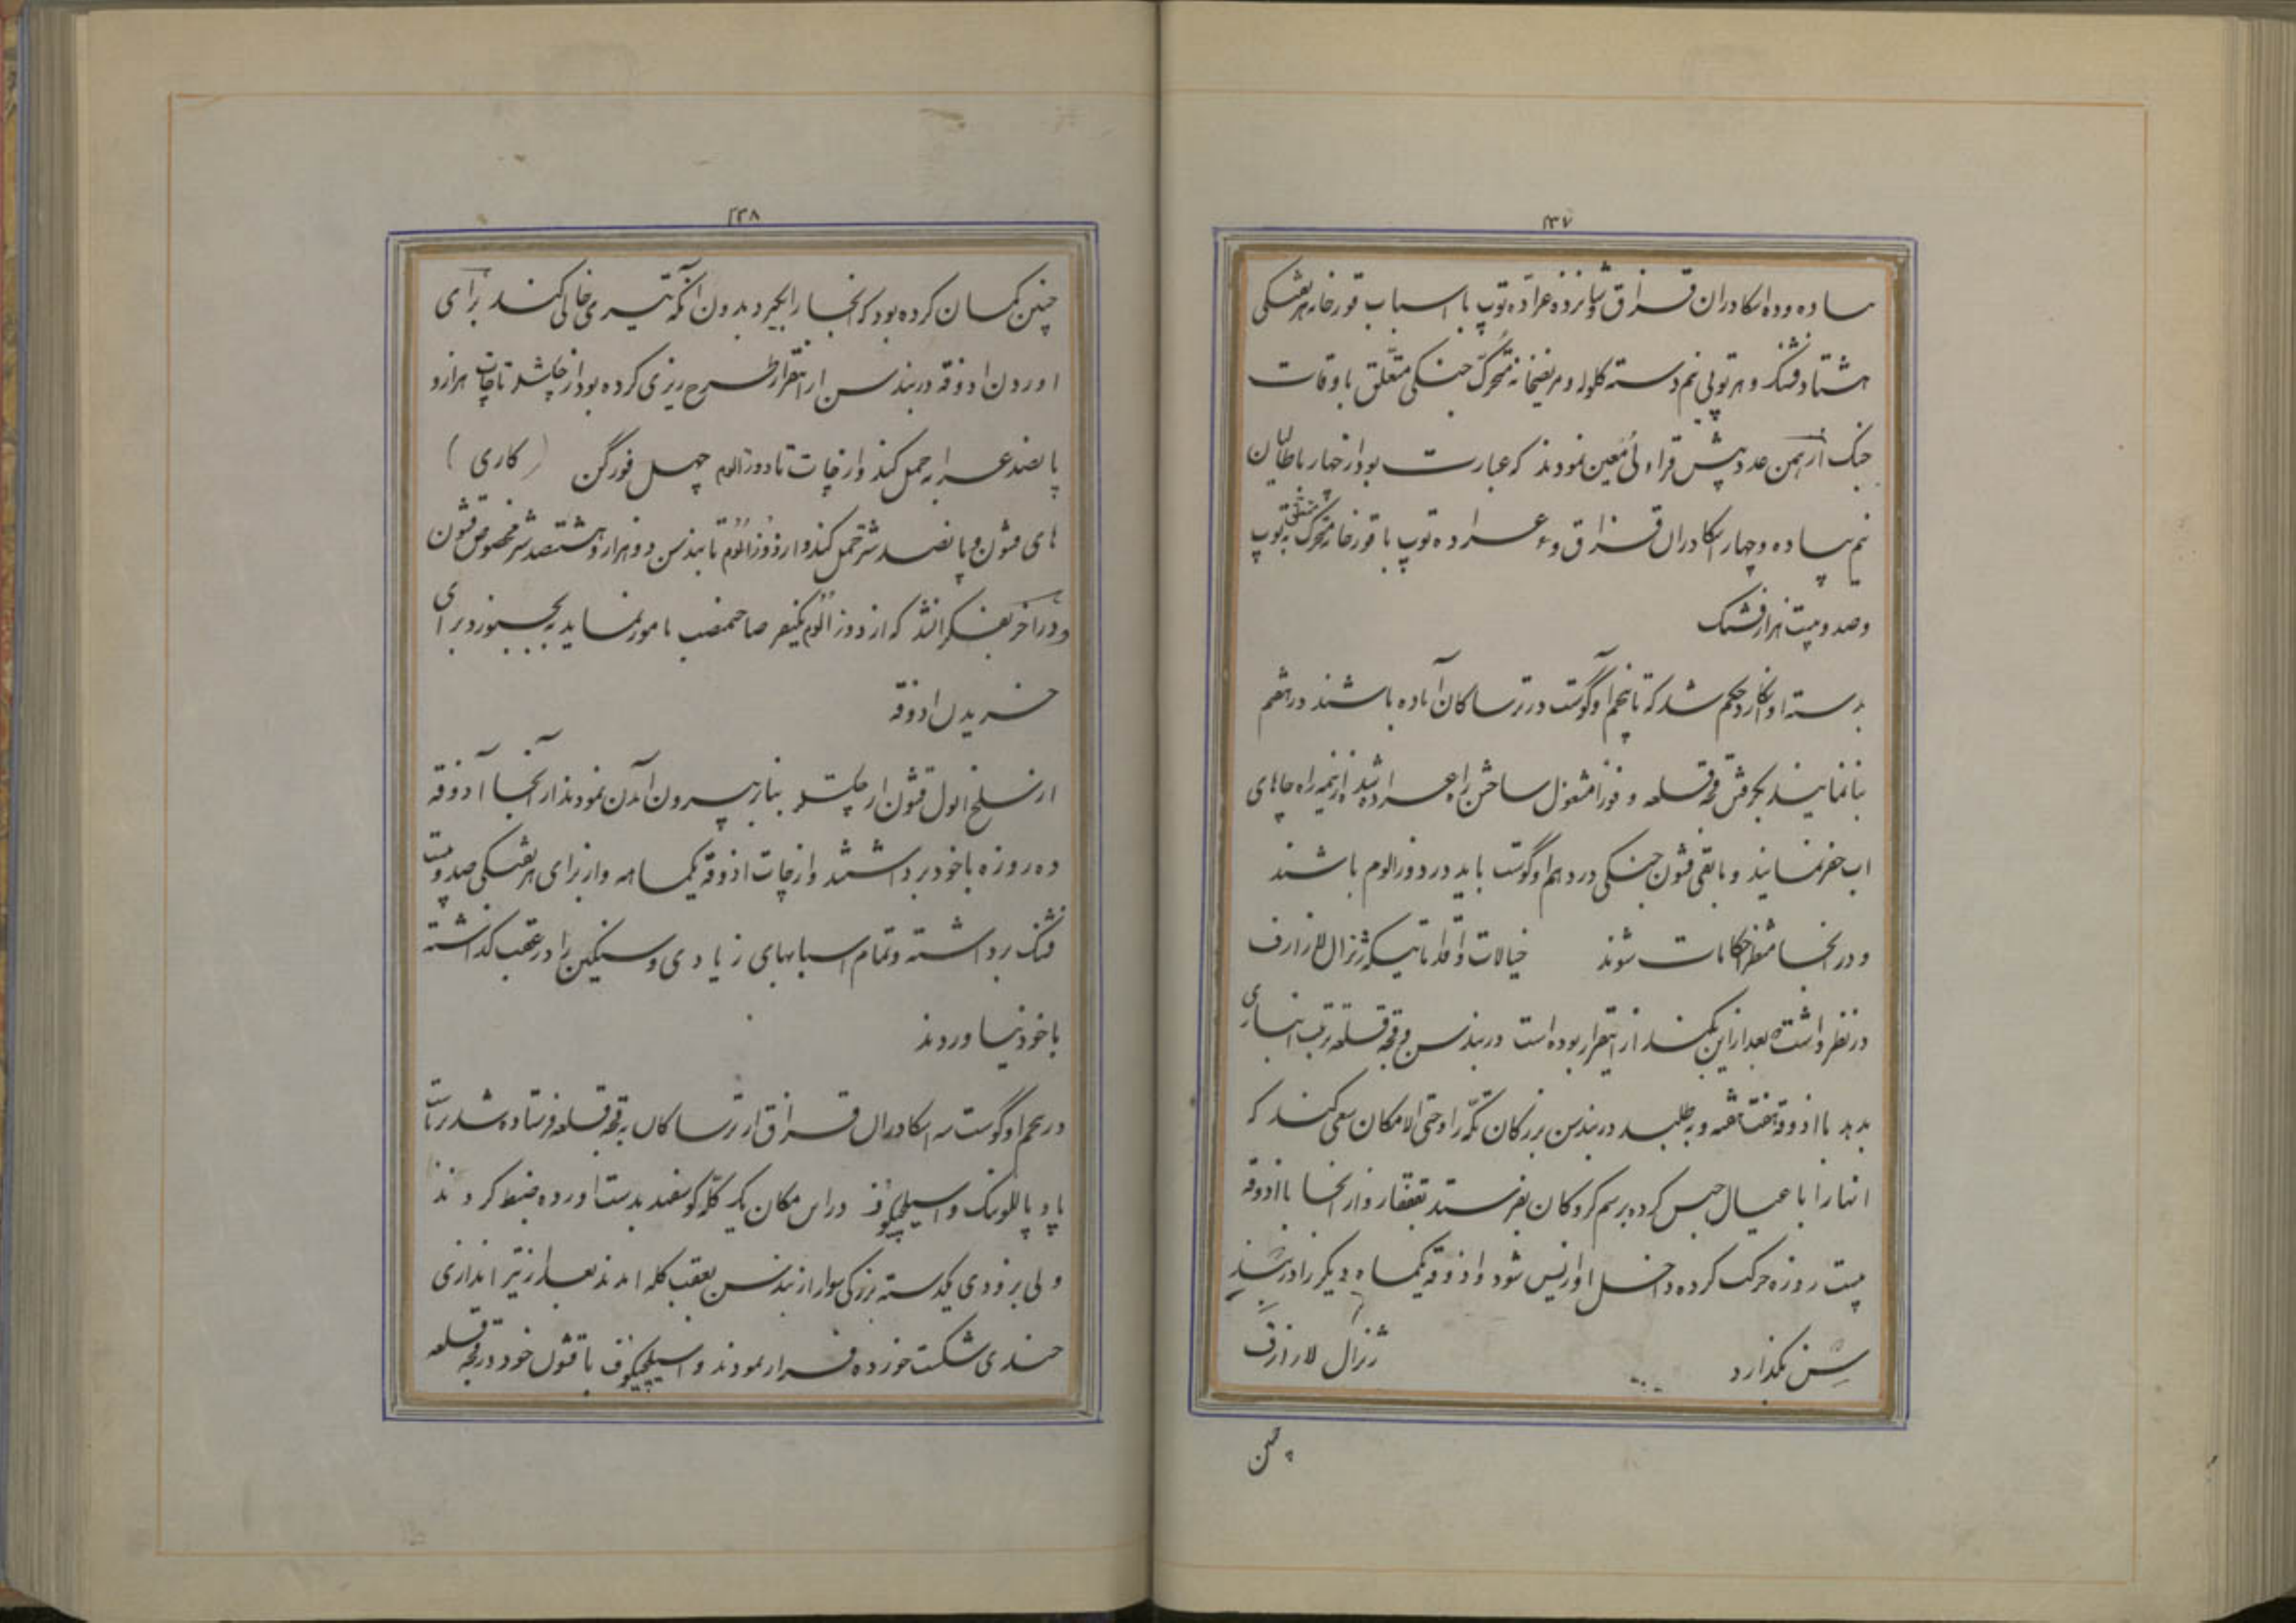 ۲۳۷
پیاده و ده اسکادران قزاق و شانزده عراده توپ با اسباب قورخانه هر تفنگی
هشتاد فشنگ و هر توپی نیم دسته گلوله و مریضخانه متحرک جنگی متعلق باوقات
جنگ از همین عدد پیش قراولی معین نمودند که عبارت بود از چهار باطالیان
نیم پیاده و چهار اسکادران قزاق و عراده توپ با قورخانه متحرک متعلق به توپ
و صد و بیست هزار فشنگ
بدسته اوانکارد حکم شد که تا پنجم اوگوست در ترساکان آماده باشند در هفتم
بنا نمایند بگرفتن قجه قلعه و فورا مشغول ساختن راه عراده شده از نیمه راه چاههای
اب حفر نمایند و باقی قشون جنگی در دهم اوگوست باید در دوزالوم باشند
و در آنجا منتظر احکامات شوند خیالات و اقداماتیکه ژنرال لازارف
در نظر داشته بعد از این یکماه از اینقرار بوده است در بندسن و قجه قلعه ترتیب انباری
بدهد با اذوقه هفت هفته و بطلبد در بندسن بزرگان تکه را و حتی الامکان سعی کند که
انها را با عیال حبس کرده برسم گروگان بفرستد بقفقاز و از انجا با اذوقه
بیست روزه حرکت کرده داخل اوازیس شود و اذوقه یکماه دیگر را در بند
سن بگذارد ژنرال لازارف
چنین
۲۳۸
چنین گمان کرده بود که انجا را بگیرد بدون آنکه تیری خالی کند برای
اوردن اذوقه در بندسن از اینقرار طرح ریزی کرده بود از چکشلر تا چات هزار و
پانصد عرابه حمل کند و از چات تا دوزالوم چهل فورگن (کاری)
های قشون و پانصد شتر حمل کند و از دوزالوم تا بندسن دو هزار و هشتصد شتر مخصوص قشون
و در اخر بفکر افتاد که از دوزالوم یکنفر صاحمنصب مامور نماید به بجنورد برای
خریدن اذوقه
از سلخ ایول قشون از چکشلر بنای بیرون آمدن نمودند از آنجا آذوقه
ده روزه با خود برداشتند و از چات اذوقه یکماهه و از برای هر تفنگی صد و بیست
فشنگ برداشته و تمام اسبابهای زیادی و سنگین را در عقب گذاشته
با خود نیاوردند
در پنجم اوگوست سه اسکادران قزاق از ترساکان به قجه قلعه فرستاده شد بریاست
پادپالکونیک واسیلچیکوف در این مکان یک گله گوسفند بدست اورده ضبط کردند
ولی بزودی یکدسته بزرگی سوار از بندسن بعقب گله امدند بعد از تیر اندازی
چندی شکست خورده فرار نمودند واسیلچیکوف با قشون خود در قجه قلعه